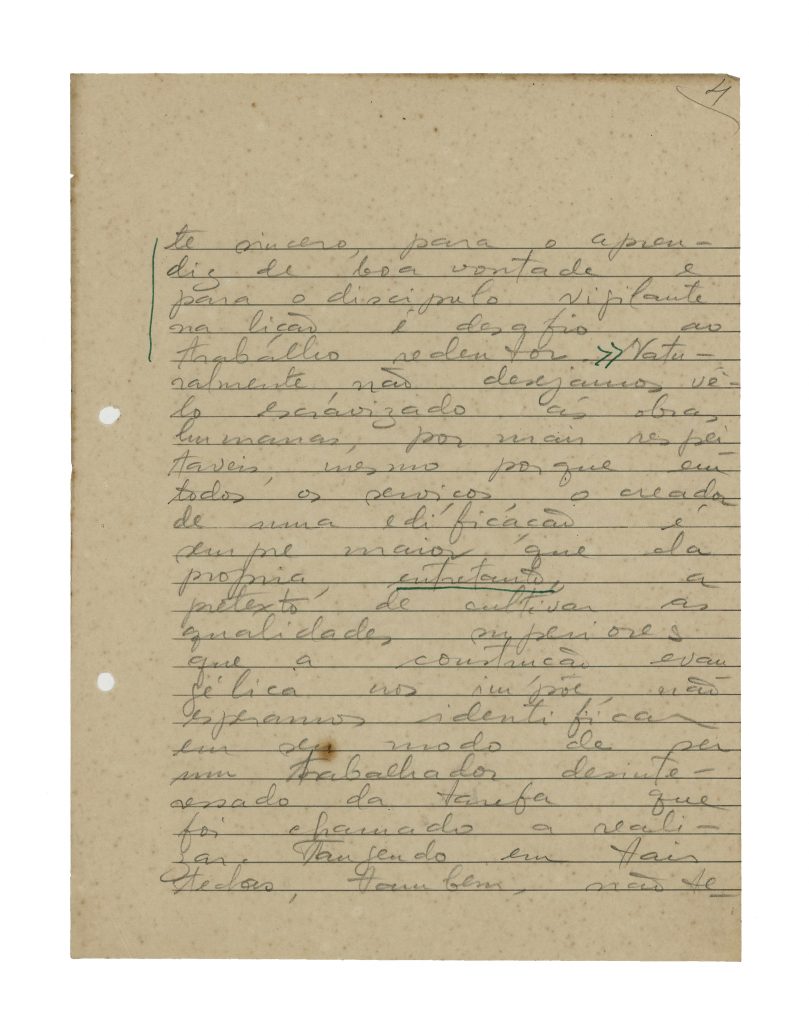 4
te sincero, para o apren-
diz de boa vontade e
para o discipulo vigilante
na lição é desafio ao
trabalho redentor. >> Natu-
ralmente, não desejamos vê-
lo escravizado ás obras
humanas, por mais respei
taveis, mesmo porque em
todos os serviços o creador
de uma edificação é
sempre maior que ela
propria, entretanto, a
pretexto de cultivar as
qualidades superiores
que a construcão evan
gélica nos impõe, não
esperamos identificar
em seu modo de ser
um trabalhador desinte-
ressado da tarefa que
foi chamado a reali-
zar. Tangendo em tais
teclas, tambem, não te